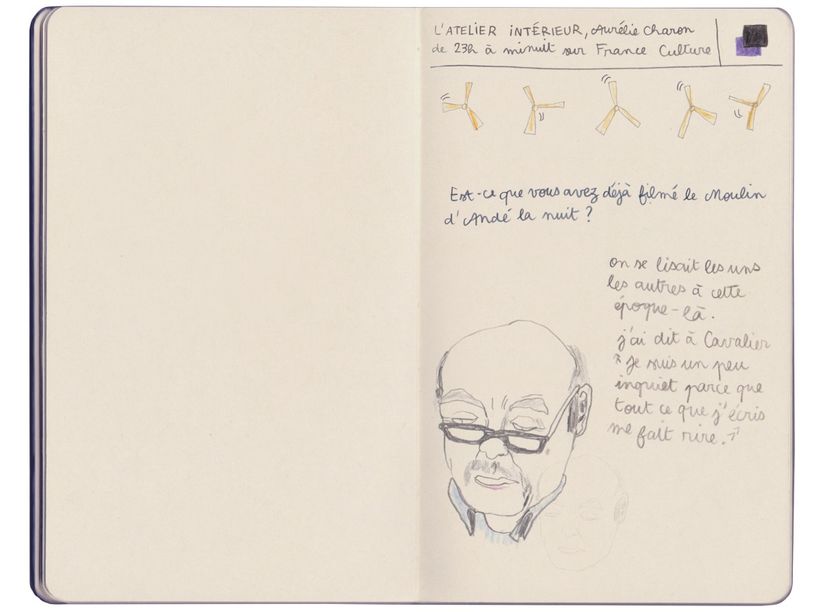 L'ATELIER INTÉRIEUR, Aurélie Charon
de 23h à minuit sur France Culture
Est-ce que vous avez déjà filmé le Moulin
d'Andé la nuit ?
on se lisait les uns
les autres à cette
époque-là.
j'ai dit à Cavalier
"Je suis un peu
inquiet parce que
tout ce que j'écris
me fait rire."